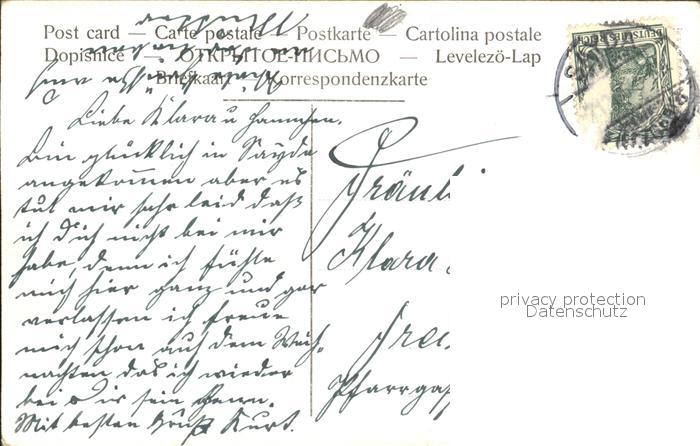 Post card — Carte postale — Postkarte — Cartolina postale
Dopisnice — ОТКРЫТОЕ-ПИСЬМО — Levelező-Lap
Briefkaart — Korrespondenzkarte
DEUTSCHES REICH
Liebe Klara u Hannchen.
Bin glücklich in Sayda
angekommen aber es
tut mir sehr leid daß
ich dich nicht bei mir
habe, denn ich fühle
mich hier ganz und gar
verlassen ich freue
mich schon auf dem Weih-
nachten das ich wieder
bei dir sein kann.
Mit besten Gruß Kurt.
Fräul
Klara
Frei
Pfarrga
privacy protection
Datenschutz